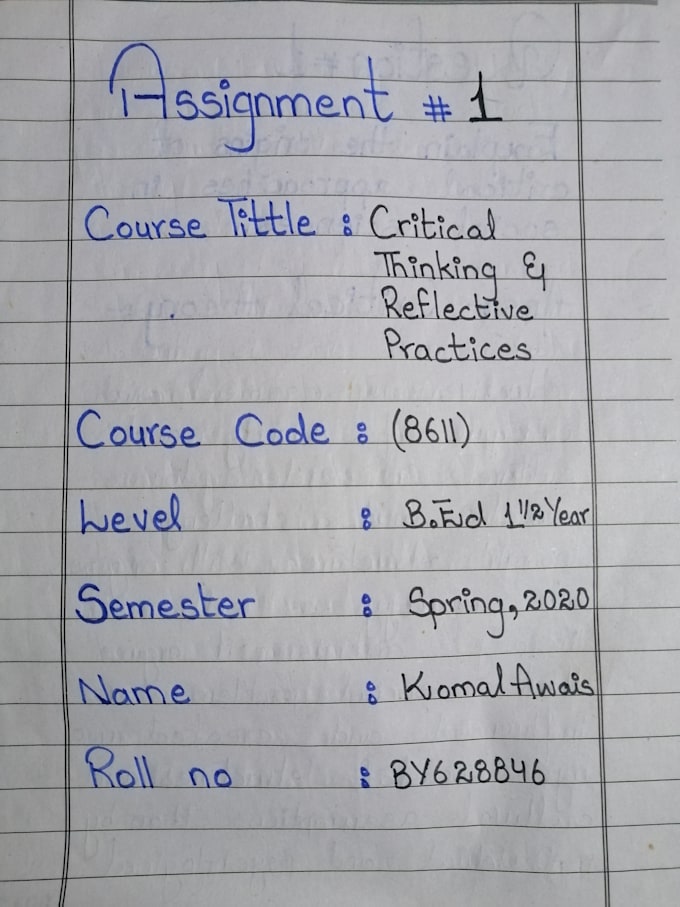 Assignment # 1
Course Tittle : Critical
Thinking &
Reflective
Practices
Course Code : (8611)
Level : B.Ed 1 1/2 Year
Semester : Spring, 2020
Name : Komal Awais
Roll no : BY628846